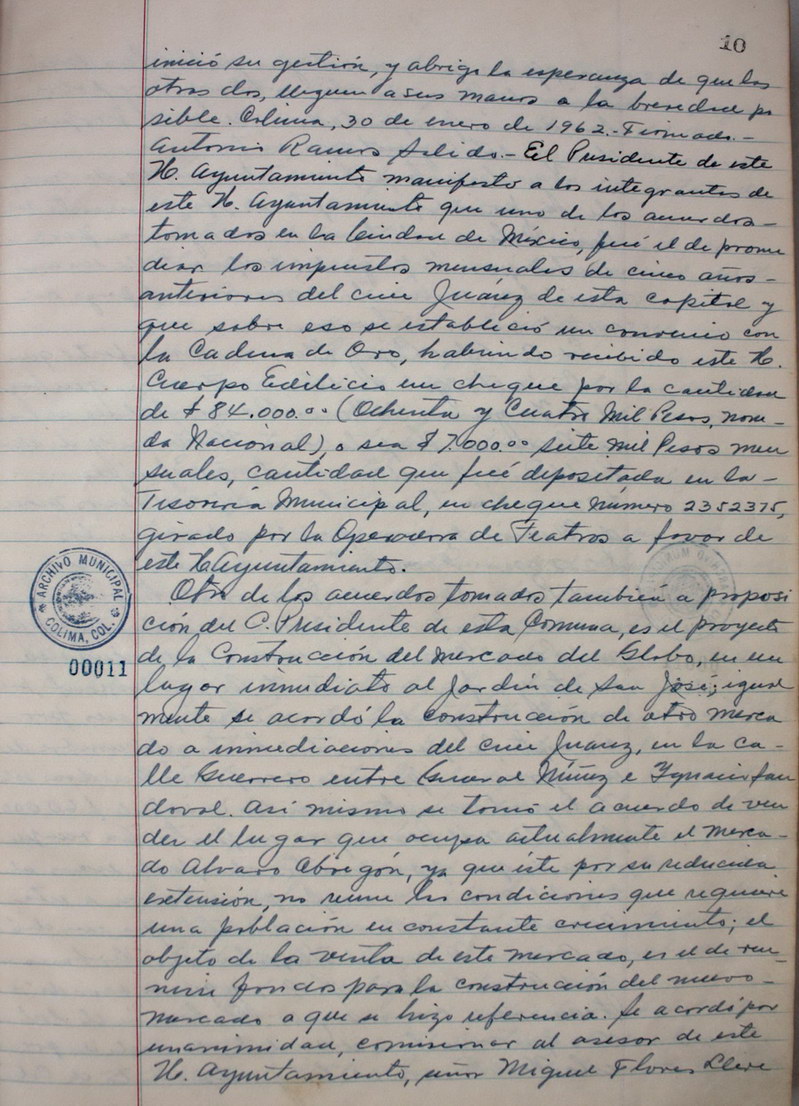 10
inició su gestión, y abrigo la esperanza de que los
otros dos, lleguen a sus manos a la brevedad po
sible. Colima, 30 de enero de 1962.- Firmado.-
Antonio Ramos Salido.- El Presidente de este
H. Ayuntamiento manifestó a los integrantes de
este H. Ayuntamiento que uno de los acuerdos-
tomados en la Ciudad de México, fué el de prome
diar los impuestos mensuales de cinco años-
anteriores del cine Juárez de esta capital y
que sobre eso se estableció un convenio con
la Cadena de Oro, habiendo recibido este H.
Cuerpo Edilicio un cheque por la cantidad
de $84.000.00 (Ochenta y Cuatro Mil Pesos, mone-
da Nacional), o sea $7.000.00 siete mil Pesos men
suales, cantidad que fué depositada en la-
Tesorería Municipal, en cheque número 2352375,
girado por la Operadora de Teatros a favor de
este H. Ayuntamiento.
Otro de los acuerdos tomados también a proposi
ción del C. Presidente de esta Comuna, es el proyecto
de la Construcción del mercado del Globo, en un
lugar inmediato al Jardín de San José; igual
mente se acordó la construcción de otro merca
do a inmediaciones del cine Juarez, en la ca-
lle Guerrero entre General Núñez e Ygnacio San
doval. Así mismo se tomó el acuerdo de ven
der el lugar que ocupa actualmente el merca-
do Alvaro Obregón, ya que éste por su reducida
extensión, no reune las condiciones que requiere
una población en constante crecimiento; el
objeto de la venta de este mercado, es el de reu-
nir fondos para la construcción del nuevo-
mercado a que se hizo referencia. Se acordó por
unanimidad, comisionar al asesor de este
H. Ayuntamiento, señor Miguel Flores
ARCHIVO MUNICIPAL
COLIMA, COL.
00011